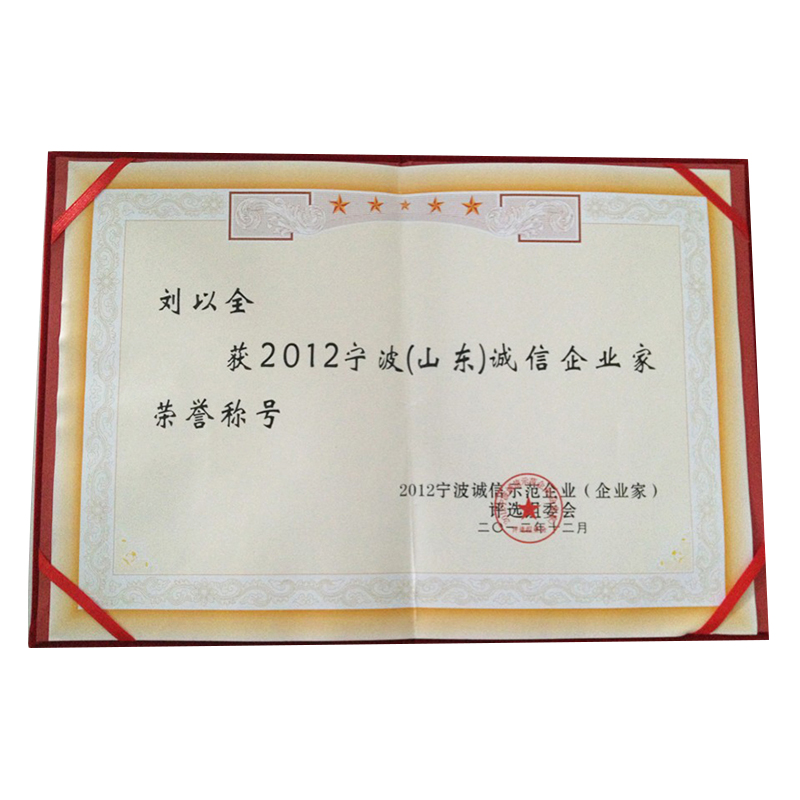 刘以全
获2012宁波(山东)诚信企业家
荣誉称号
2012宁波诚信示范企业（企业家）
评选组委会
二〇一二年十二月